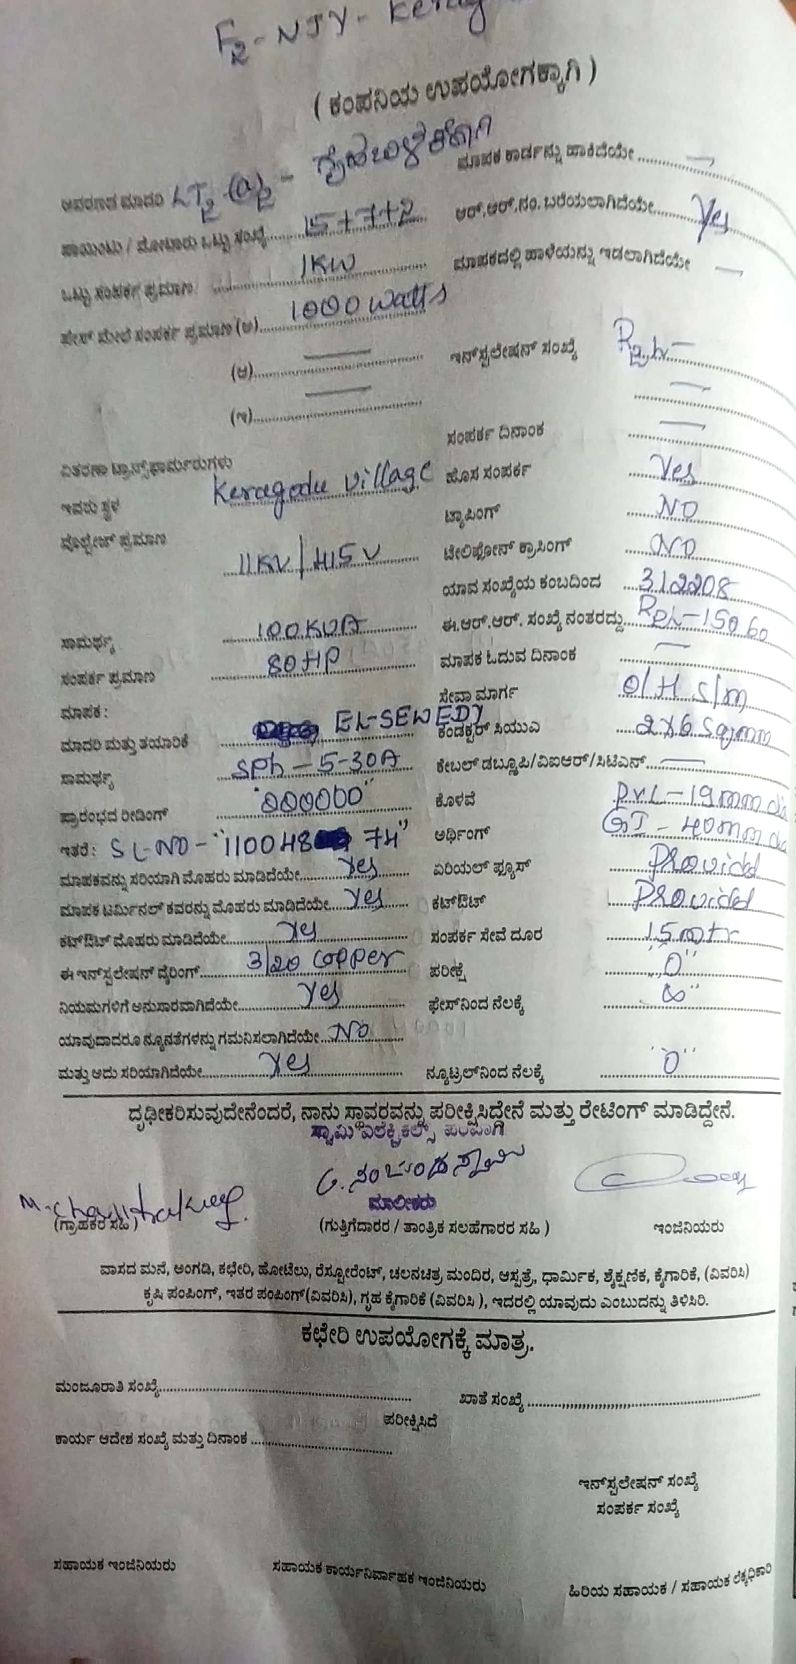 F2-NJY-
( ಕಂಪನಿಯ ಉಪಯೋಗಕ್ಕಾಗಿ )
ಮಾಪಕ ಕಾರ್ಡನ್ನು ಹಾಕಿದೆಯೇ .......... —
LT2 (a)2 -
ಪಾಯಿಂಟು / ಮೋಟಾರು ಒಟ್ಟು ಸಂಖ್ಯೆ 15+7+2 ಆರ್.ಆರ್.ನಂ. ಬರೆಯಲಾಗಿದೆಯೇ Yes
ಒಟ್ಟು ಸಂಪರ್ಕ ಪ್ರಮಾಣ 1KW ಮಾಪಕದಲ್ಲಿ ಹಾಳೆಯನ್ನು ಇಡಲಾಗಿದೆಯೇ —
ಫೇಸ್ ಮೇಲೆ ಸಂಪರ್ಕ ಪ್ರಮಾಣ (ಅ) 1000 watts
(ಆ) — ಇನ್‌ಸ್ಟಲೇಷನ್ ಸಂಖ್ಯೆ
(ಇ) — —
ಸಂಪರ್ಕ ದಿನಾಂಕ —
ವಿತರಣಾ ಟ್ರಾನ್ಸ್‌ಫಾರ್ಮರುಗಳು
ಇವರು ಸ್ಥಳ Keragodu village ಹೊಸ ಸಂಪರ್ಕ Yes
ಟ್ಯಾಪಿಂಗ್ NO
ವೋಲ್ಟೇಜ್ ಪ್ರಮಾಣ 11KV/415V ಟೆಲಿಫೋನ್ ಕ್ರಾಸಿಂಗ್ NO
ಯಾವ ಸಂಖ್ಯೆಯ ಕಂಬದಿಂದ 312208
ಸಾಮರ್ಥ್ಯ 100KVA ಈ.ಆರ್.ಆರ್. ಸಂಖ್ಯೆ ನಂತರದ್ದು 15060
ಸಂಪರ್ಕ ಪ್ರಮಾಣ 80HP ಮಾಪಕ ಓದುವ ದಿನಾಂಕ —
ಮಾಪಕ : ಸೇವಾ ಮಾರ್ಗ O/H S/m
ಮಾದರಿ ಮತ್ತು ತಯಾರಿಕೆ EL-SEWEDY ಕಂಡಕ್ಟರ್ ಸಿಯುಎ 2x6 Sqmm
ಸಾಮರ್ಥ್ಯ SPh-5-30A ಕೇಬಲ್ ಡಬ್ಲ್ಯೂಪಿ/ವಿಐಆರ್/ಸಿಟಿಎಸ್ —
ಪ್ರಾರಂಭದ ರೀಡಿಂಗ್ "000000" ಕೊಳವೆ PVC-19mm
ಇತರೆ : SL-NO-"110048 74" ಅರ್ಥಿಂಗ್ GI-40mm
ಮಾಪಕವನ್ನು ಸರಿಯಾಗಿ ಮೊಹರು ಮಾಡಿದೆಯೇ Yes ಏರಿಯಲ್ ಫ್ಯೂಸ್ Provided
ಮಾಪಕ ಟರ್ಮಿನಲ್ ಕವರನ್ನು ಮೊಹರು ಮಾಡಿದೆಯೇ Yes ಕಟ್‌ಔಟ್ Provided
ಕಟ್‌ಔಟ್ ಮೊಹರು ಮಾಡಿದೆಯೇ Yes ಸಂಪರ್ಕ ಸೇವೆ ದೂರ 15mtr
ಈ ಇನ್‌ಸ್ಟಲೇಷನ್ ವೈರಿಂಗ್ 3/20 Copper ಪರೀಕ್ಷೆ "0"
ನಿಯಮಗಳಿಗೆ ಅನುಸಾರವಾಗಿದೆಯೇ Yes ಫೇಸ್‌ನಿಂದ ನೆಲಕ್ಕೆ ∞"
ಯಾವುದಾದರೂ ನ್ಯೂನತೆಗಳನ್ನು ಗಮನಿಸಲಾಗಿದೆಯೇ No
ಮತ್ತು ಅದು ಸರಿಯಾಗಿದೆಯೇ Yes ನ್ಯೂಟ್ರಲ್‌ನಿಂದ ನೆಲಕ್ಕೆ "0"
ದೃಢೀಕರಿಸುವುದೇನೆಂದರೆ, ನಾನು ಸ್ಥಾವರವನ್ನು ಪರೀಕ್ಷಿಸಿದ್ದೇನೆ ಮತ್ತು ರೇಟಿಂಗ್ ಮಾಡಿದ್ದೇನೆ.
ಸ್ವಾಮಿ ಎಲೆಕ್ಟ್ರಿಕಲ್ಸ್ ಪರವಾಗಿ
ಮಾಲೀಕರು
(ಗ್ರಾಹಕರ ಸಹಿ) (ಗುತ್ತಿಗೆದಾರರ / ತಾಂತ್ರಿಕ ಸಲಹೆಗಾರರ ಸಹಿ ) ಇಂಜಿನಿಯರು
ವಾಸದ ಮನೆ, ಅಂಗಡಿ, ಕಛೇರಿ, ಹೋಟೆಲು, ರೆಸ್ಟೋರೆಂಟ್, ಚಲನಚಿತ್ರ ಮಂದಿರ, ಆಸ್ಪತ್ರೆ, ಧಾರ್ಮಿಕ, ಶೈಕ್ಷಣಿಕ, ಕೈಗಾರಿಕೆ, (ವಿವರಿಸಿ)
ಕೃಷಿ ಪಂಪಿಂಗ್, ಇತರ ಪಂಪಿಂಗ್(ವಿವರಿಸಿ), ಗೃಹ ಕೈಗಾರಿಕೆ (ವಿವರಿಸಿ ), ಇದರಲ್ಲಿ ಯಾವುದು ಎಂಬುದನ್ನು ತಿಳಿಸಿರಿ.
ಕಛೇರಿ ಉಪಯೋಗಕ್ಕೆ ಮಾತ್ರ.
ಮಂಜೂರಾತಿ ಸಂಖ್ಯೆ.......... ಖಾತೆ ಸಂಖ್ಯೆ ..........
ಪರೀಕ್ಷಿಸಿದೆ
ಕಾರ್ಯ ಆದೇಶ ಸಂಖ್ಯೆ ಮತ್ತು ದಿನಾಂಕ ..........
ಇನ್‌ಸ್ಟಲೇಷನ್ ಸಂಖ್ಯೆ
ಸಂಪರ್ಕ ಸಂಖ್ಯೆ
ಸಹಾಯಕ ಇಂಜಿನಿಯರು ಸಹಾಯಕ ಕಾರ್ಯನಿರ್ವಾಹಕ ಇಂಜಿನಿಯರು ಹಿರಿಯ ಸಹಾಯಕ / ಸಹಾಯಕ ಲೆಕ್ಕಧಿಕಾರಿ